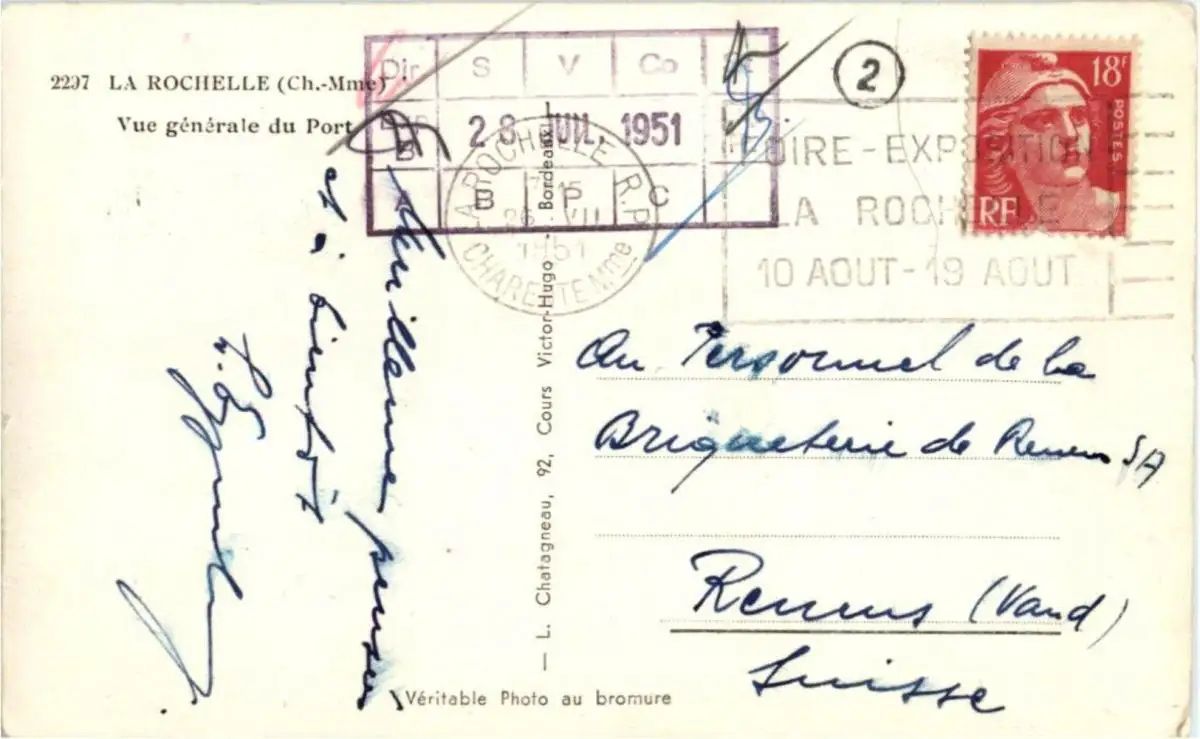 2297 LA ROCHELLE (Ch.-Mme)
Vue générale du Port
Dir S V Co
28 JUIL. 1951
B
A B P C
LA ROCHELLE R.P
26 VII
1951
CHARENTE Mme
FOIRE-EXPOSITION
LA ROCHELLE
10 AOUT-19 AOUT
2
18F
POSTES
RF
Meilleures pensées
et à bientôt
— L. Chatagneau, 92, Cours Victor-Hugo - Bordeaux
Au Personnel de la
Briqueterie de Renens SA
Renens (Vaud)
Suisse
Véritable Photo au bromure